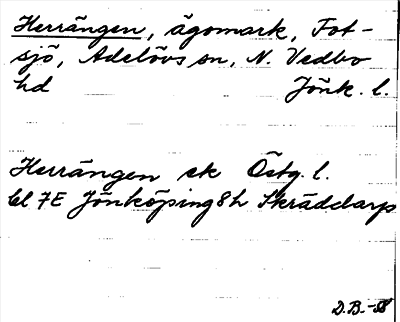 Herrängen, ägomark, Fot-
sjö, Adelövs sn, N. Vedbo
hd Jönk. l.
Herrängen ek Östg. l.
bl 7E Jönköping 8h Skräddarp
D.B.-58